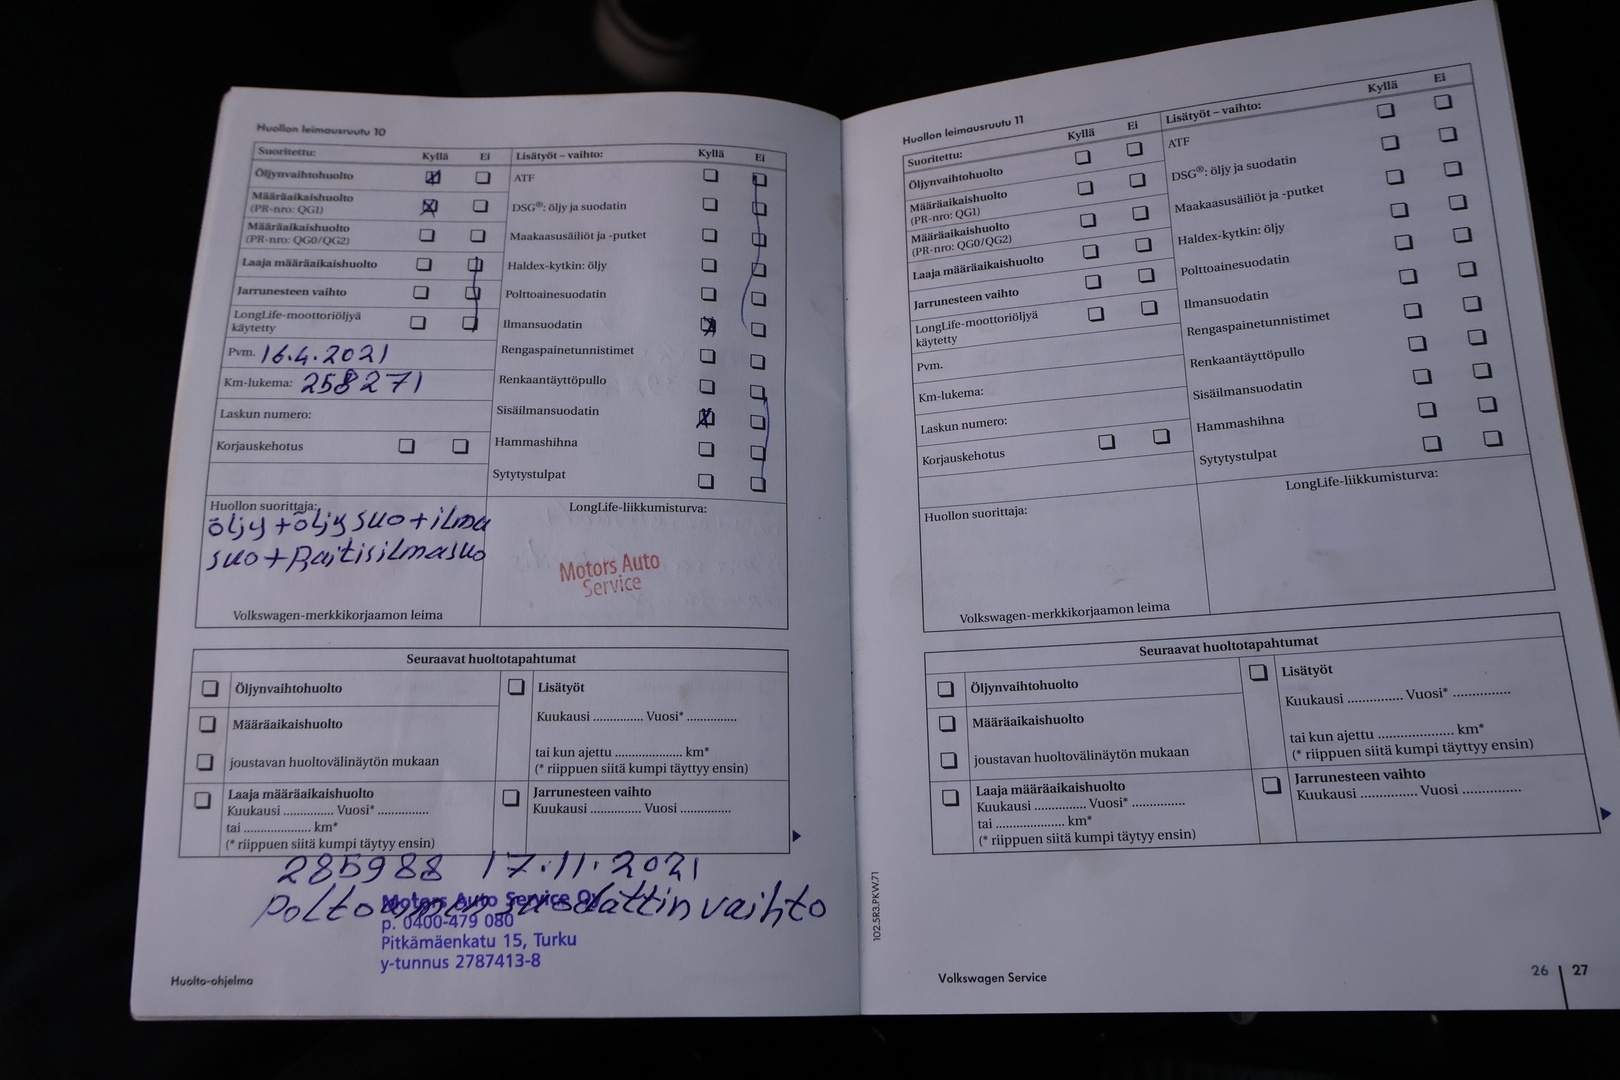 Huollon leimausruutu 10
Suoritettu: Kyllä Ei
Öljynvaihtohuolto
Määräaikaishuolto
(PR-nro: QG1)
Määräaikaishuolto
(PR-nro: QG0/QG2)
Laaja määräaikaishuolto
Jarrunesteen vaihto
LongLife-moottoriöljyä
käytetty
Pvm. 16.4.2021
Km-lukema: 258271
Laskun numero:
Korjauskehotus
Huollon suorittaja:
öljy+öljysuo+ilma
suo+Raitisilmasuo
Volkswagen-merkkikorjaamon leima
Lisätyöt – vaihto: Kyllä Ei
ATF
DSG®: öljy ja suodatin
Maakaasusäiliöt ja -putket
Haldex-kytkin: öljy
Polttoainesuodatin
Ilmansuodatin
Rengaspainetunnistimet
Renkaantäyttöpullo
Sisäilmansuodatin
Hammashihna
Sytytystulpat
LongLife-liikkumisturva:
Motors Auto
Service
Seuraavat huoltotapahtumat
Öljynvaihtohuolto
Määräaikaishuolto
joustavan huoltovälinäytön mukaan
Laaja määräaikaishuolto
Kuukausi .............. Vuosi* ..............
tai .................... km*
(* riippuen siitä kumpi täytyy ensin)
Lisätyöt
Kuukausi .............. Vuosi* ..............
tai kun ajettu .................... km*
(* riippuen siitä kumpi täyttyy ensin)
Jarrunesteen vaihto
Kuukausi .............. Vuosi ..............
285988 17.11.2021
suodattin vaihto
Motors Auto Service Oy
p. 0400-479 080
Pitkämäenkatu 15, Turku
y-tunnus 2787413-8
Huolto-ohjelma
Huollon leimausruutu 11
Suoritettu: Kyllä Ei
Öljynvaihtohuolto
Määräaikaishuolto
(PR-nro: QG1)
Määräaikaishuolto
(PR-nro: QG0/QG2)
Laaja määräaikaishuolto
Jarrunesteen vaihto
LongLife-moottoriöljyä
käytetty
Pvm.
Km-lukema:
Laskun numero:
Korjauskehotus
Huollon suorittaja:
Volkswagen-merkkikorjaamon leima
Lisätyöt – vaihto: Kyllä Ei
ATF
DSG®: öljy ja suodatin
Maakaasusäiliöt ja -putket
Haldex-kytkin: öljy
Polttoainesuodatin
Ilmansuodatin
Rengaspainetunnistimet
Renkaantäyttöpullo
Sisäilmansuodatin
Hammashihna
Sytytystulpat
LongLife-liikkumisturva:
Seuraavat huoltotapahtumat
Öljynvaihtohuolto
Määräaikaishuolto
joustavan huoltovälinäytön mukaan
Laaja määräaikaishuolto
Kuukausi .............. Vuosi* ..............
tai .................... km*
(* riippuen siitä kumpi täytyy ensin)
Lisätyöt
Kuukausi .............. Vuosi* ..............
tai kun ajettu .................... km*
(* riippuen siitä kumpi täyttyy ensin)
Jarrunesteen vaihto
Kuukausi .............. Vuosi ..............
102.5R3.PKW.71
Volkswagen Service
26 27